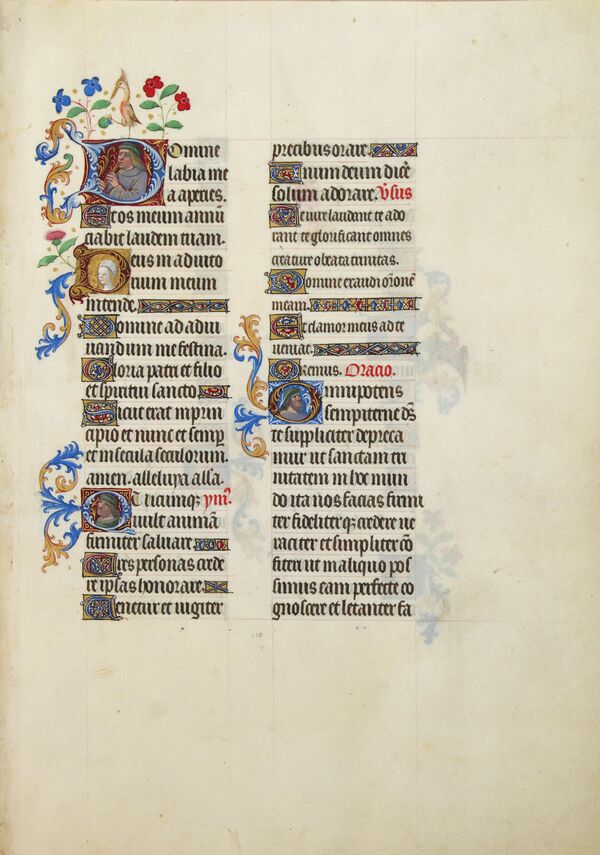 Domine
labia me
a aperies.
Et os meum annū
ciabit laudem tuam.
Deus in adiuto
rium meum
intende.
Domine ad adiu
uandum me festina.
Gloria patri et filio
et spiritui sancto.
Sicut erat in prin
cipio et nunc et semp
et in secula seculorum.
amen. alleluya alla.
Quicumq; ymꝰ.
uult animā
firmiter saluare.
Tres personas crede
re ipsas honorare.
Tenetur et iugiter
precibus orare.
Et unum deum dicē
solum adorare. Vsus
Te iure laudant te ado
rant te glorificant omnes
creature o beata trinitas.
Domine exaudi orōnē
meam.
Et clamor meus ad te
ueniat.
Oremus. Oracio.
Omnipotens
sempiterne ds̄
te suppliciter depreca
mur ut sanctam tri
nitatem in hoc mun
do ita nos facias firmi
ter fideliterq; credere ue
raciter et simpliciter cō
fiteri ut in aliquo pos
simus eam perfecte co
gnoscere et letanter fa